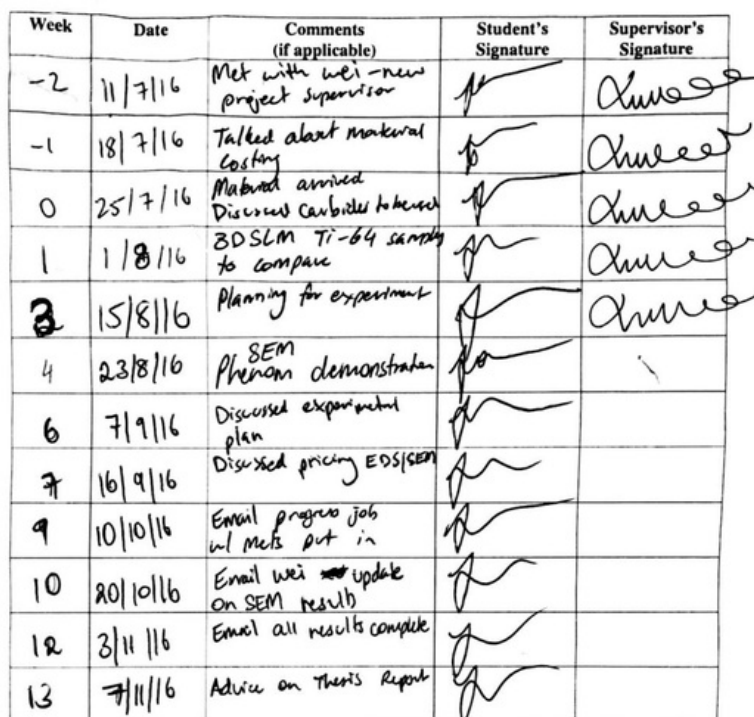 Week Date Comments (if applicable) Student's Signature Supervisor's Signature
-2 11/7/16 Met with wei - new
project supervisor
-1 18/7/16 Talked about material
costing
0 25/7/16 Material arrived
Discussed carbides to be used
1 1/8/16 3DSLM Ti-64 samples
to compare
3 15/8/16 Planning for experiment
4 23/8/16 SEM
Phenom demonstration
6 7/9/16 Discussed experimental
plan
7 16/9/16 Discussed pricing EDS/SEM
9 10/10/16 Email progress job
w/ Mets put in
10 20/10/16 Email wei update
on SEM results
12 3/11/16 Email all results complete
13 7/11/16 Advice on Thesis Report